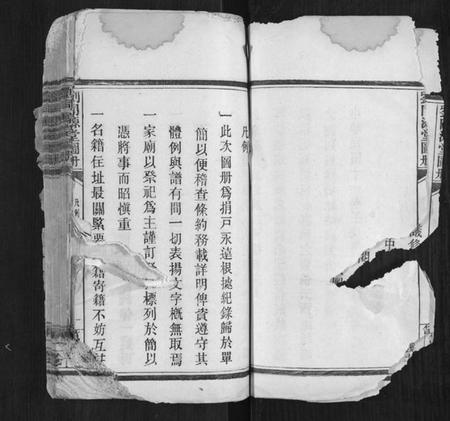 凡例
一此次圖册爲捐戶永遠根據紀錄歸於單
簡以便稽查條約務載詳明俾資遵守其
體例與譜有間一切表揚文字槪無取焉
一家廟以祭祀爲主謹訂 標列於簡以
憑將事而昭愼重
一名籍住址最關緊要 籍寄籍不妨互
堂圖册
凡例
堂圖册